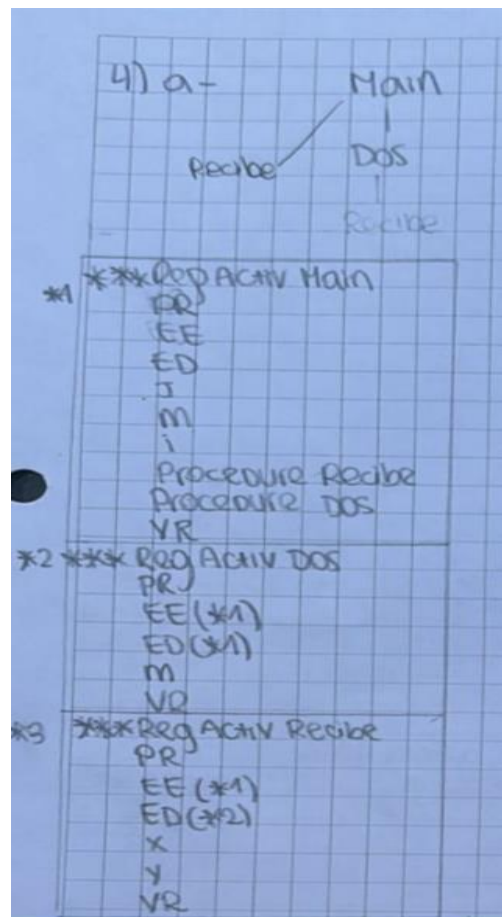 4) a- Main
Recibe Dos
Recibe
*1 *** Reg Activ Main
PR
EE
ED
J
m
i
Procedure Recibe
Procedure Dos
VR
*2 *** Reg Activ Dos
PR
EE (*1)
ED (*1)
m
VR
*3 *** Reg Activ Recibe
PR
EE (*1)
ED (*2)
x
y
VR